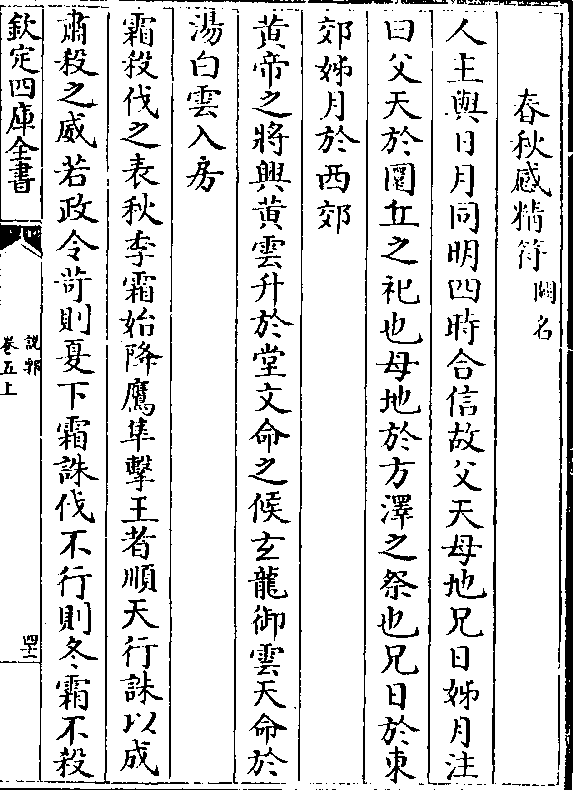 春秋感精符闕名
人主與日月同明四時合信故父天母地兄日姊月注
曰父天於圜丘之祀也母地於方澤之祭也兄日於東
郊姊月於西郊
黄帝之將興黄雲升於堂文命之候玄龍御雲天命於
湯白雲入房
霜殺伐之表秋季霜始降鷹隼擊王者順天行誅以成
肅殺之威若政令苛則夏下霜誅伐不行則冬霜不殺
欽定四庫全書
說郛
卷五上
四十二